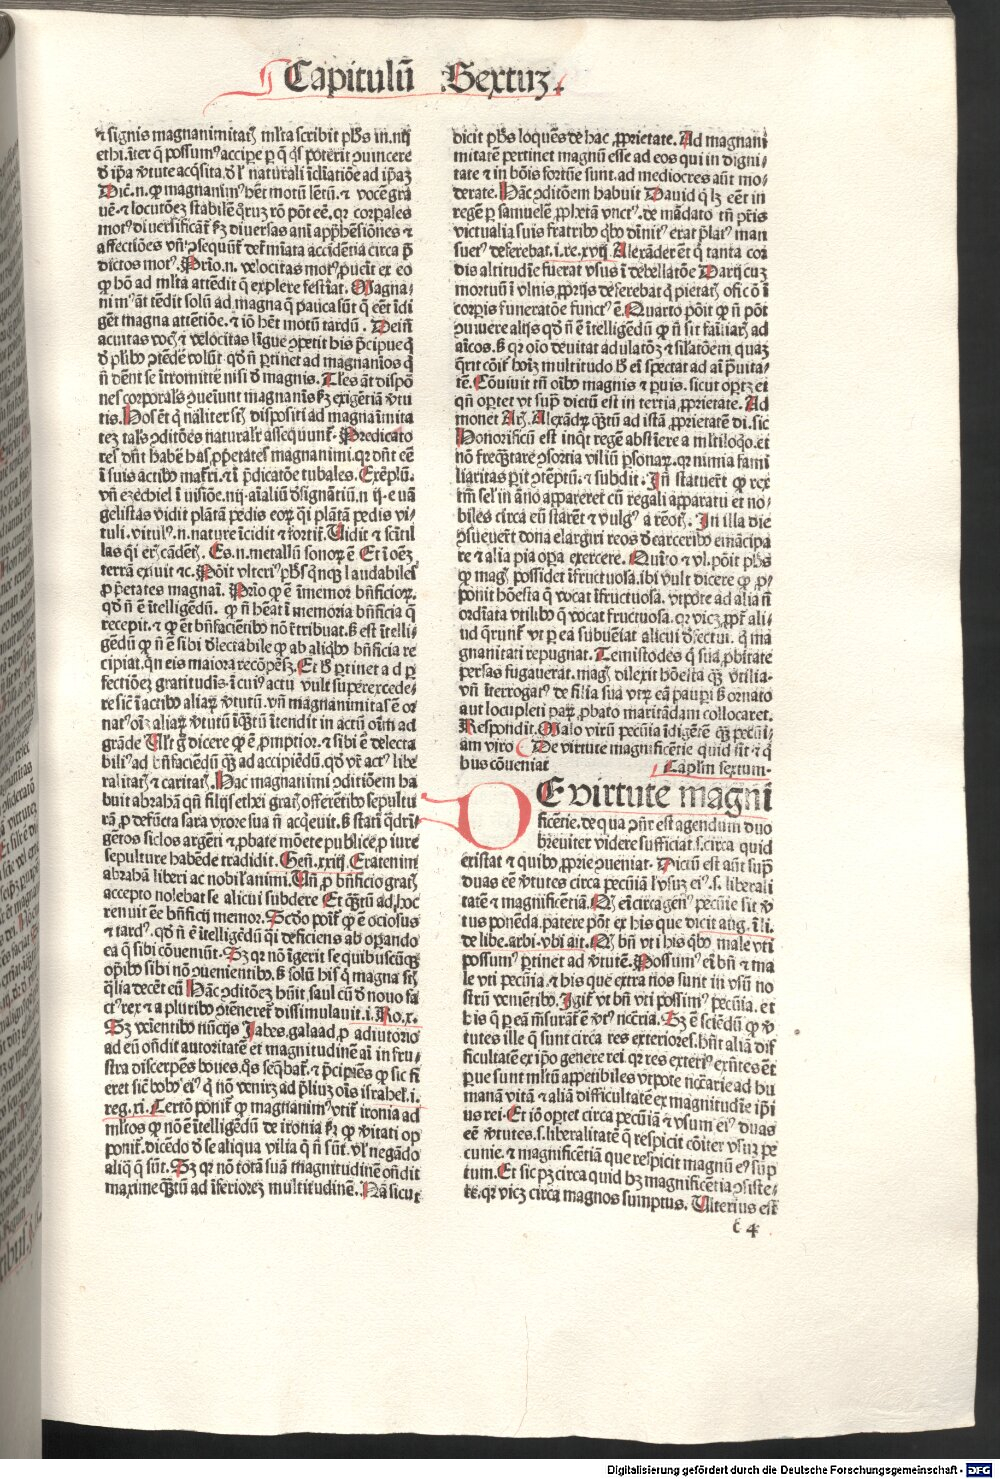 Capitulū Sextuz.
⁊ signis magnanimitatꝭ ml̓ta scribit ph̓s in .iiij
ethi. īter q̄ possum⁹ accipe ꝑ q̄ q̓s poterit ꝯuincere
d̓ ip̄a v̓tute acq̓sita. d̓ l̓ naturali īcliatiōe ad ip̄aꝫ
Dic̄ .n. ꝙ magnanim⁹ hꝫ motū lētū. ⁊ vocē gra
uē. ⁊ locutōeꝫ stabilē q̓ruꝫ rō pōt eē. qꝛ corꝑales
mot⁹ diuersificāt᷑ ẜm diuersas ani app̄hēsiōnes ⁊
affectiōes vn̄ ꝯsequūt᷑ det̓miata accidētia circa p̄
dictos mot⁹. Prio .n. velocitas mot⁹ ꝓuēit ex eo
ꝙ hō ad ml̓ta attēdit q̄ explere festiāt. Magna-
nim⁹ āt tēdit solū ad magna q̄ pauca sūt q̄ eēt īdi
gēt magna attētiōe. ⁊ iō hꝫ motū tardū. Deiñ
acuitas vocꝭ ⁊ velocitas līgue ꝯpetit his p̄cipue q̄
d̓ pl̓ibꝰ ꝯtēdē volūt. qd̓ nō ꝑtinet ad magnanīos q̄
nō dēnt se ītromittē nisi d̓ magnis. Tles āt dispō
nes corporal̓s ꝯueiunt magnanīs ẜꝫ exigētiā v̓tu
tis. Hos ēt q̄ nāliter sꝭ dispositi ad magnanimita
teꝫ tal̓s ꝯditōes naturalr̄ assequunt᷑. Predicato
res dn̄t habē has ꝓp̓etates magnanimi. qꝛ dn̄t eē
ī suis actibꝰ mat̓ri. ⁊ ī p̄dicatōe tubales. Exēplū.
vn̄ ezechiel ī visiōe .iiij. aialiū d̓signātiū .n ij. euā
gelistas vidit plātā pedis eorꝝ q̄i plātā pedis vi-
tuli. vitul⁹ .n. nature īcidit ⁊ fortit̓. Uidit ⁊ scītil
las q̄i eris cādētꝭ. Es .n. metallū sonorū ē Et ī oēꝫ
terrā exiuit ⁊c. Pōit vlteri⁹ ph̓s q̄nqꝫ laudabiles
ꝓp̓etates magnai. Prio ꝙ ē īmemor bn̄ficiorꝝ.
qd̓ nō ē ītelligēdū. ꝙ nō hēat ī memoria bn̄ficia q̄
recepit. ⁊ ꝙ ēt bn̄faciētibꝰ nō ī tribuat. ß est ītelli-
gēdū ꝙ nō ē sibi d̓lectabile ꝙ ab aliq̓bꝰ bn̄ficia re
cipiat. qn̄ eis maiora recōpēsꝫ. Et h̓ ꝑtinet ad ꝑ
fectiōeꝫ gratitudīs. ī cui⁹ actu vult superexcede-
re sic̄ ī actibꝰ aliaꝝ v̓tutū. vn̄ magnanimitas ē or
nat⁹ oīꝫ aliaꝝ v̓tutū īq̄stū ītendit in actū oīm ad
grāde Ult̓ ḡ dicere ꝙ ē ꝓmptior. ⁊ sibi ē delecta
bili⁹ ad bn̄faciēdū q̄ꝫ ad accipiēdū. qd̓ vt̓ act⁹ libe
ralitatꝭ ⁊ caritatꝭ. Hāc magnanimi ꝯditiōem ha
buit abrahā qn̄ filijs ethei gratꝭ offerētibꝰ sepultu
rā ꝓ defūcta sara vxore sua nō acq̓euit. ß statī q̄dri-
gētos siclos argēti ⁊ ꝓbate mōete publice ꝓ iure
sepulture habēde tradidit. Geñ. xxiij. Erat enim
abrahā liberi ac nobil̓ animi. Un̄ ꝓ bn̄ficio gratꝭ
accepto nolebat se alicui subdere Et q̄stū ad hoc
renuit ēe bn̄ficij memor. Scd̓o poīt ꝙ ē ociosus
⁊ tard⁹. qd̓ nō ē ītelligēdū q̄i deficiens ab opando
ea q̄ sibi cōueniūt. Sꝫ qꝛ nō īgerit se quibuscūqꝫ
opibꝰ sibi nō ꝯuenientibꝰ. ß solū his q̄ magna sꝭ
q̄lia decēt eū Hāc ꝯditōeꝫ hūit saul cū d̓ nouo fa
ct⁹ rex ⁊ a pluribꝰ ꝯtēneret̓ dissimulauit .i. Ro. x.
Sꝫ veientibꝰ nūcijs Iabes. galaad ꝓ adiutorio
ad eū on̄dit autoritatē et magnitudinē ai in fru-
stra discerpēs boues. q̓s seq̄bat̓. ⁊ p̄cipiēs ꝙ sic fi
eret sic̄ bobꝰ ei⁹ q̄ nō veniret ad p̄liuꝫ oīs israhel .i.
reg. xi. Tertō ponit̓ ꝙ magnanim⁹ vtit̓ ironia ad
ml̓tos ꝙ nō ē ītelligēdū de ironia ẜꝫ ꝙ v̓itati op
ponit̓. dicēdo d̓ se aliqua vilia q̄ nō sūt. vl̓ negādo
aliq̄ q̄ sūt. Sꝫ qꝛ nō totā suā magnitudinē on̄dit
maxime q̄stū ad īferioreꝫ multitudinē. Nā sicut
dicit ph̓s loquēs de hac ꝓprietate. Ad magnani
mitatē pertinet magnū esse ad eos qui in digni-
tate ⁊ in bōis fortūe sunt. ad mediocres aūt mo-
derate. Hāc ꝯditōem habuit Dauid q̄ lꝫ eēt in
regē ꝑ samuelē ꝓphetā vnct⁹. de mādato tn̄ pr̄is
victualia suis fratribꝰ q̓bꝰ diuit⁹ erat p̄lat⁹ man
suet⁹ deferebat. i. re. xvij. Alexāder ēt q̄ tanta cor
dis altitudīe fuerat vsus ī debellatōe Darij cuꝫ
mortuū ī vlnis ꝓprijs deferebat q̄ pietatꝭ oficō ī
corpis funeratōe funct⁹ ē. Quarto pōit ꝙ nō pōt
ꝯuiuere alijs qd̓ nō ē ītelligēdū ꝙ nō sit fāiliarꝭ ad
aīcos. ß qꝛ oīo deuitat adulatōꝫ ⁊ silatōem quaꝫ
q̓rit cōit̓ hoīꝫ multitudo h̓ ei spectat ad ai puita-
tē. Cōuiuit tn̄ oībꝰ magnis ⁊ ꝑuis. sicut oportꝫ ei
qn̄ oportet vt sup̓ dictū est in tertia ꝓprietate. Ad
monet Arꝭ. Alexādꝝ q̄stū ad istā ꝓprietatē di. sic
Honorificū est inqt regē abstiere a ml̓tiloq̓o. et
nō freq̄tare ꝯsortia viliū ꝑsonaꝝ. qꝛ nimia fami
liaritas parit ꝯtēptū. ⁊ subdit. In statuer̄t ꝙ rex
tm̄ sel̓ in āno appareret cū regali apparatu et no-
biles circa eū starēt ⁊ vulg⁹ a reōtꝭ. In illa die
ꝯsueuer̄t dona elargiri reos d̓ carceribꝰ emācipa
re ⁊ alia pia opa exercere. Quīto ⁊ vl. pōit ph̓s
ꝙ magꝭ possidet īfructuosa. ibi vult dicere ꝙ ꝓ-
ponit hōesta q̄ vocat īfructuosa. vtpote ad alia nō
ordīata vtilibꝰ q̄ vocat fructuosa. qꝛ vicꝫ ꝓpt̓ ali-
ud q̄runt̓ vt ꝑ ea subueīat alicui d̓fectui. q̄ ma
gnanitati repugnat. Temistodes q̄ sua ꝓbitate
persas fugauerat. magꝭ dilexit hōesta q̄ꝫ vtilia-
vn̄ īterrogat⁹ de filia sua vtꝝ eā paupi ß ornato
aut locupleti paꝝ ꝓbato maritādam collocaret.
Respondit. Malo virū pecūia īdigētē q̄ꝫ pecūi-
am viro De virtute magnificētie quid sit ⁊ q̄
bus cōueniat Caplm̄ sextum.
DE virtute magni
ficētie. de qua ꝯn̄r est agendum duo
breuiter videre sufficiat. s. circa quid
existat ⁊ quibꝰ ꝓprie ꝯueniat. Dictū est aūt sup̓
duas eē v̓tutes circa pecūiā l̓ vsuꝫ ei⁹. s. liberali
tatē ⁊ magnificētiā. Qꝭ eī circa gen⁹ pecūie sit v̓
tus ponēda. patere pōt ex his que dicit aug. ī li.
de libe. arbi. vbi ait. Qꝭ bn̄ vti his q̓bꝰ male vti
possum⁹ pertinet ad v̓tutē. Possum⁹ ei bn̄ ⁊ ma
le vti pecūia. ⁊ his que extra nos sunt in vsū no
strū veniētibꝰ. Igit̓ vt bn̄ vti possim⁹ pecūia. et
his q̄ ꝑ eā mēsurāt̓ ē v̓t⁹ ncc̄ria. Sꝫ ē sciēdū ꝙ v̓
tutes ille q̄ sunt circa res exteriores. hn̄t aliā dif
ficultatē ex ip̄o genere rei. qꝛ res exteri⁹ exn̄tes ēt
ꝑue sunt ml̓tū appetibiles vtpote ncc̄arie ad hu
manā vitā ⁊ aliā difficultatē ex magnitudīe ip̄i
us rei. Et iō oportet circa pecūiā ⁊ vsum ei⁹ duas
eē v̓tutes. s. liberalitatē q̄ respicit cōiter vsuꝫ pe
cunie. ⁊ magnificētiā que respicit magnū ei⁹ sūp
tum. Et sic pꝫ circa quid hꝫ magnificētia ꝯsiste-
re. qꝛ vicꝫ circa magnos sumptus. Ulterius est
c 4
Digitalisierung gefördert durch die Deutsche Forschungsgemeinschaft - DFG